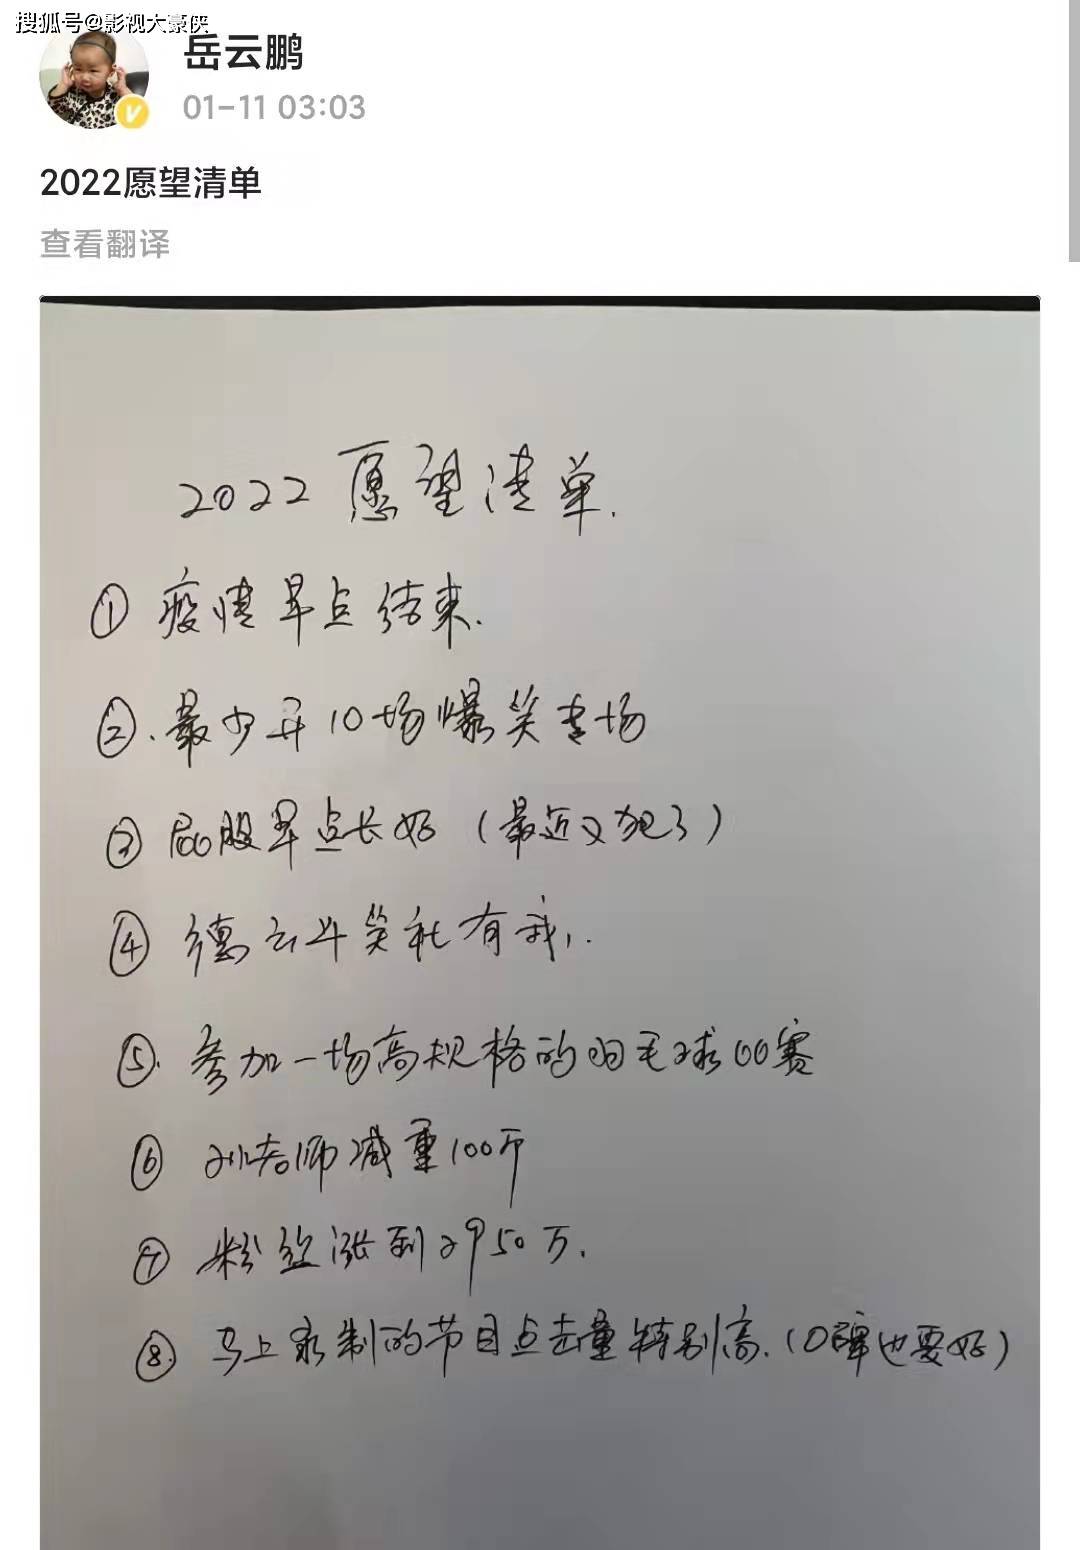 搜狐号@影视大豪侠
岳云鹏
01-11 03:03
2022愿望清单
查看翻译
2022 愿望清单.
① 疫情早点结束.
②.最少开10场爆笑专场
③ 屁股早点长好（最近又犯了）
④ 德云斗笑社有我,..
⑤.参加一场高规格的羽毛球比赛
⑥ 孙老师减重100斤
⑦ 粉丝涨到2950万.
⑧.马上录制的节目点击量特别高.(口碑也要好)